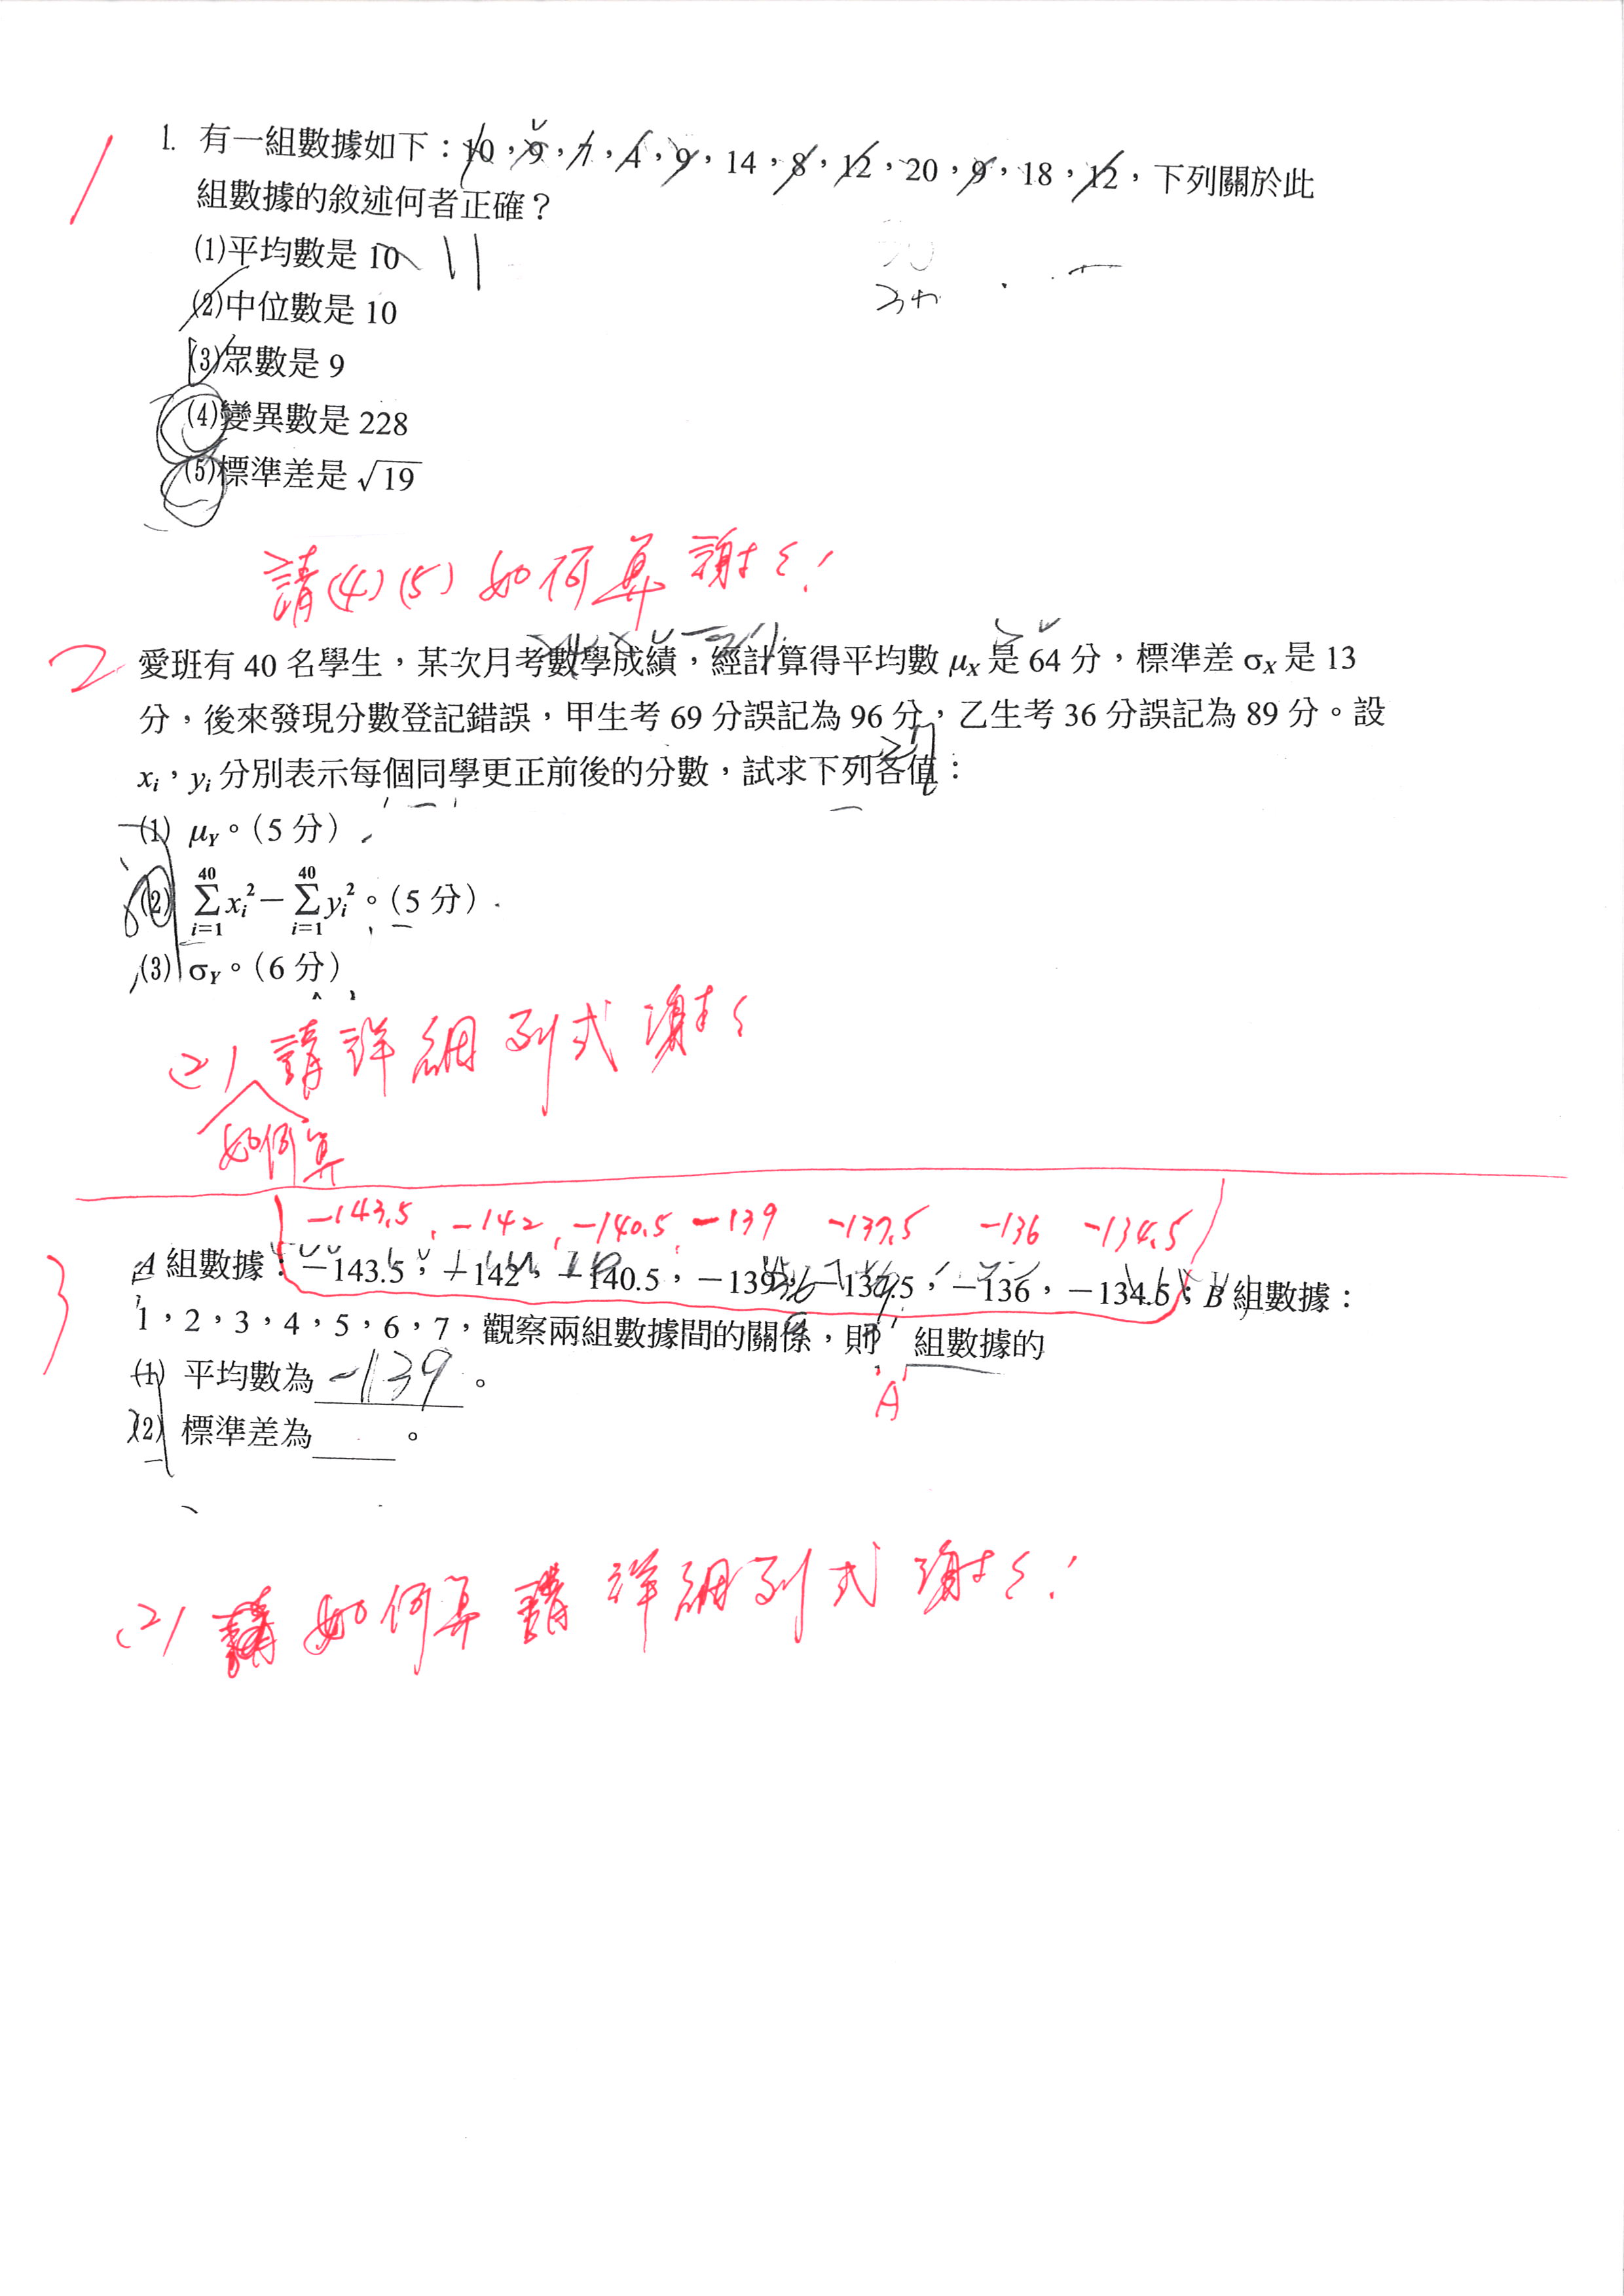 1
1. 有一組數據如下：10，9，7，4，9，14，8，12，20，9，18，12，下列關於此
組數據的敘述何者正確？
(1)平均數是 10 11
(2)中位數是 10
(3)眾數是 9
(4)變異數是 228
(5)標準差是 √19
請(4)(5)如何算 謝く!
2 愛班有 40 名學生，某次月考數學成績，經計算得平均數 μX 是 64 分，標準差 σX 是 13
分，後來發現分數登記錯誤，甲生考 69 分誤記為 96 分，乙生考 36 分誤記為 89 分。設
xi，yi 分別表示每個同學更正前後的分數，試求下列各值：
(1) μY。(5 分)
(2) 40 Σ i=1 xi² − 40 Σ i=1 yi²。(5 分)
(3) σY。(6 分)
(2) 請詳細列式 謝く
如何算
-143.5，-142，-140.5，-139 -137.5 -136 -134.5
3 A 組數據：−143.5，−142，−140.5，−139，−137.5，−136，−134.5；B 組數據：
1，2，3，4，5，6，7，觀察兩組數據間的關係，則 組數據的
A
(1) 平均數為 -139 。
(2) 標準差為 。
(2) 如何算 請詳細列式 謝く!